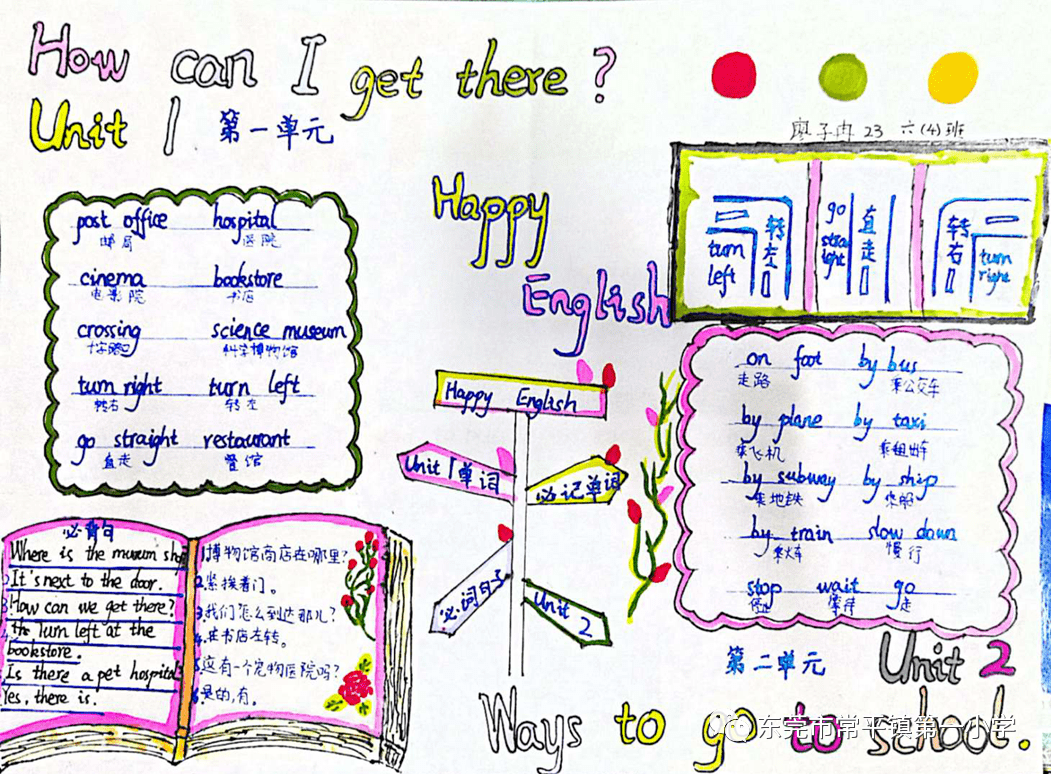 How can I get there?
Unit 1 第一单元
廖子冉 23 六(4)班
Happy
English
turn left
转左
go straight
直走
转右
turn right
post office hospital
邮局 医院
cinema bookstore
电影院 书店
crossing science museum
十字路口 科学博物馆
turn right turn left
转右 转左
go straight restaurant
直走 餐馆
Happy English
Unit 1 单词
必记单词
Unit 2
on foot by bus
走路 乘公交车
by plane by taxi
乘飞机 乘租出车
by subway by ship
乘地铁 乘船
by train slow down
乘火车 慢行
stop wait go
停止 等待 走
必背句
Where is the museum shop
It's next to the door.
How can we get there?
Turn left at the
bookstore.
Is there a pet hospital
Yes, there is.
1.博物馆商店在哪里?
2.紧挨着门。
3.我们怎么到达那儿?
4.在书店左转。
5.这有一个宠物医院吗?
6.是的,有。
第二单元 Unit 2
Ways to go to school.
东莞市常平镇第一小学